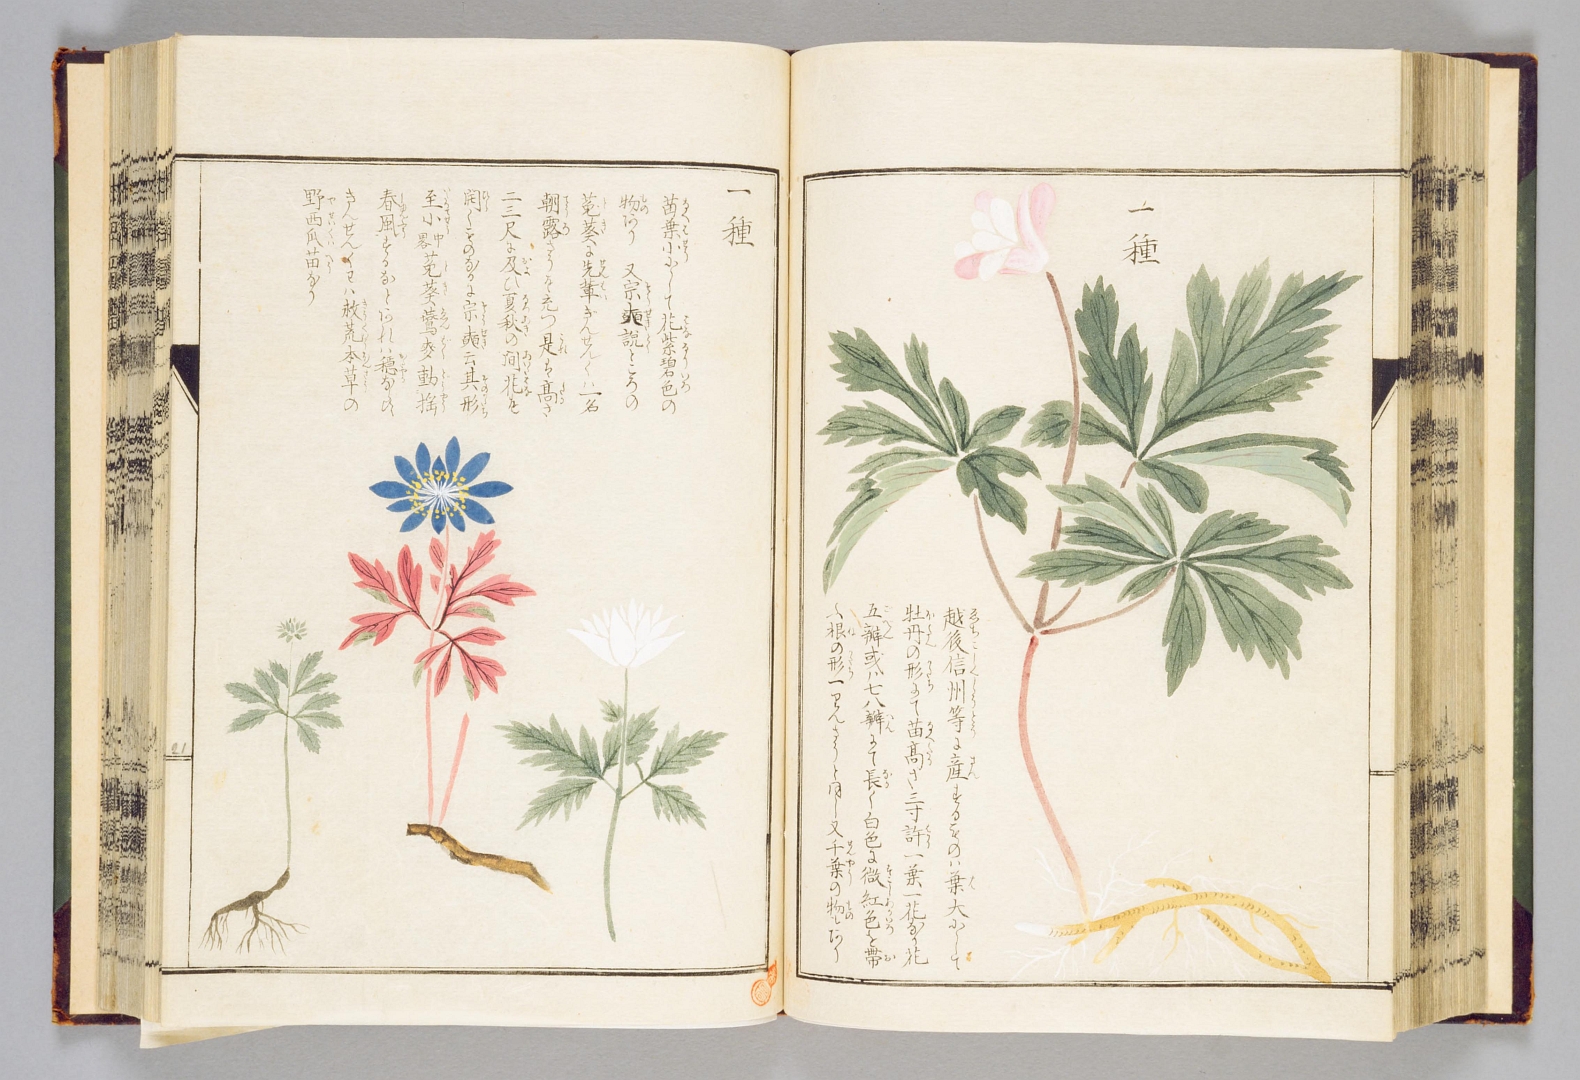 一種
越後信州等に産するものハ葉大にして
牡丹の形にて苗高さ三寸許一葉一花なり花
五瓣或ハ七八瓣にて長く白色に微紅色を帯
根の形
又千葉の物あり
一種
苗葉小にして花紫碧色の
物あり 又宗奭説ところの
菟葵は先輩ぎんせんくハ一名
朝露さうを充つ是も高さ
二三尺に及ひ夏秋の間花を
開くものなりは宗奭云其形
至小中畧菟葵鷰麥動揺
春風するなどあれハ穏ならす
きんせんくわハ救荒本草の
野西瓜苗なり